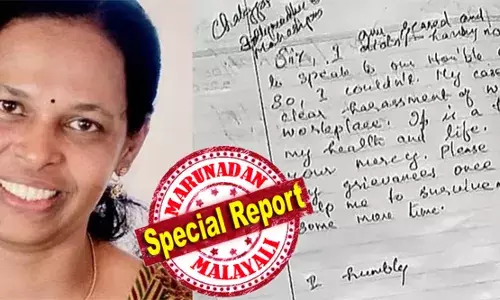 Sir, I am scared and
to speak to our Hon'ble
So, I couldn't. My case
clear harassment of w
workplace. It is a
my health and life.
your mercy. Please
my grievances once
help me to survive
some more time.
I humbly
MARUNADAN
Special Report
MALAYALI